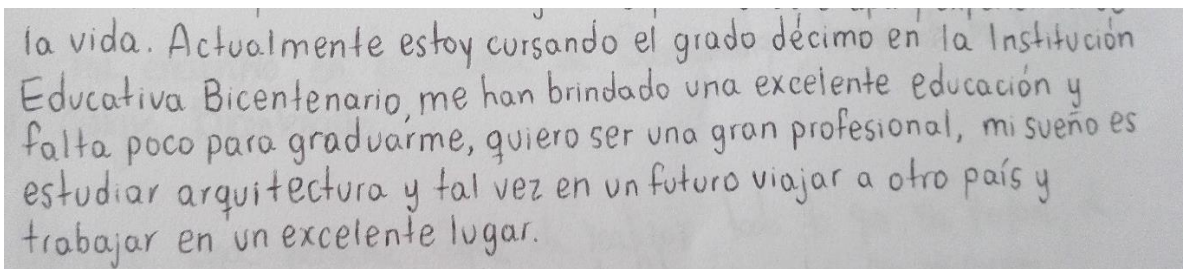 la vida. Actualmente estoy cursando el grado décimo en la Institución
Educativa Bicentenario, me han brindado una excelente educación y
falta poco para graduarme, quiero ser una gran profesional, mi sueño es
estudiar arquitectura y tal vez en un futuro viajar a otro país y
trabajar en un excelente lugar.